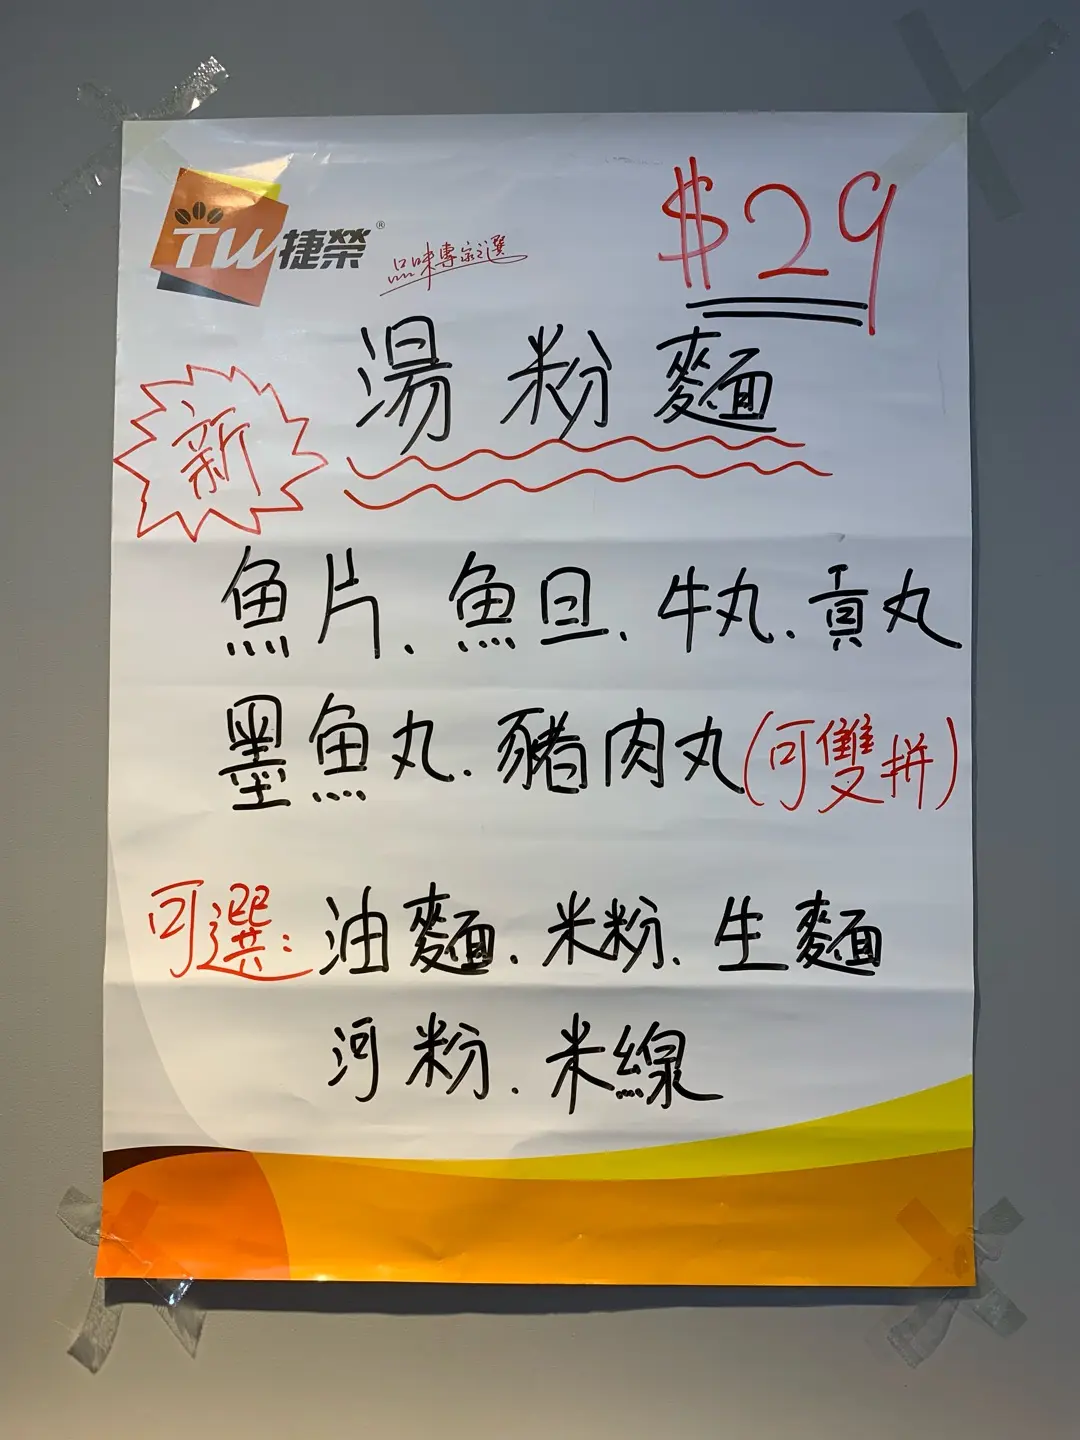 $29
TW捷榮®
品味專家之選
湯粉麵
新
魚片、魚旦、牛丸、貢丸
墨魚丸、豬肉丸(可雙拼)
可選：油麵、米粉、生麵
河粉、米線